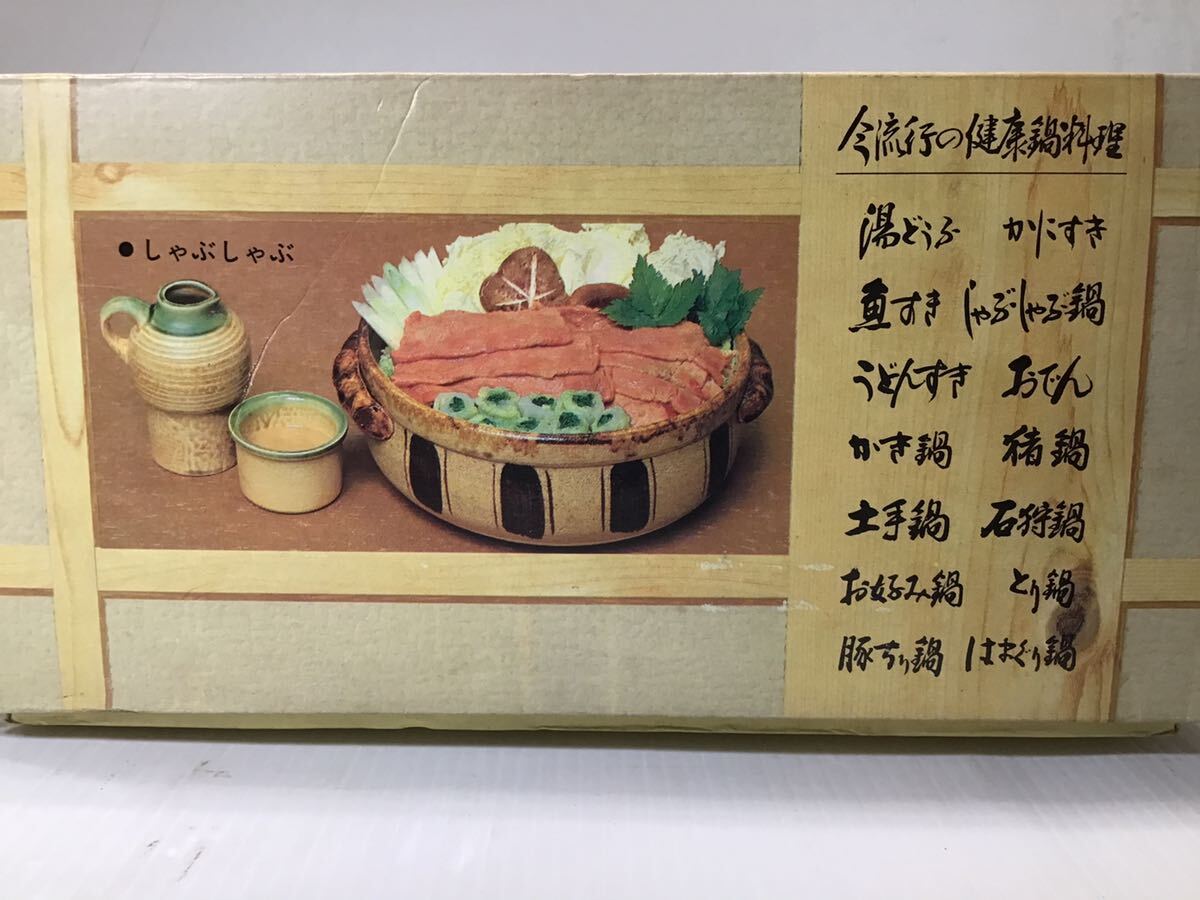 ●しゃぶしゃぶ
今流行の健康鍋料理
湯どうふ　かにすき
魚すき　しゃぶしゃぶ鍋
うどんすき　おでん
かき鍋　猪鍋
土手鍋　石狩鍋
お好み鍋　とり鍋
豚ちり鍋　はまぐり鍋